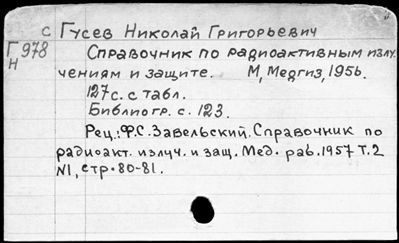 с Гусев Николай Григорьевич
Г 978
Н
Справочник по радиоактивным излу-
чениям и защите. М, Медгиз, 1956.
127с. с табл.
Библиогр. с. 123.
Рец.: Ф.С. Завельский. Справочник по
радиоакт. излуч. и защ. Мед. раб. 1957 Т.2
N1, стр. 80-81.